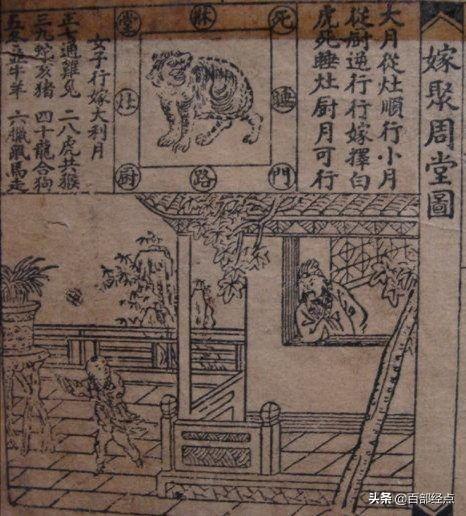 嫁聚周堂圖
大月從灶順行小月
從厨逆行行嫁擇白
虎死睡灶厨月可行
死
牀
堂
睡
灶
門
路
厨
女子行嫁大利月
正七通雞兔 二八虎共猴
三九蛇亥猪 四十龍合狗
五冬丑牛羊 六臘鼠馬走
头条 @百部经点